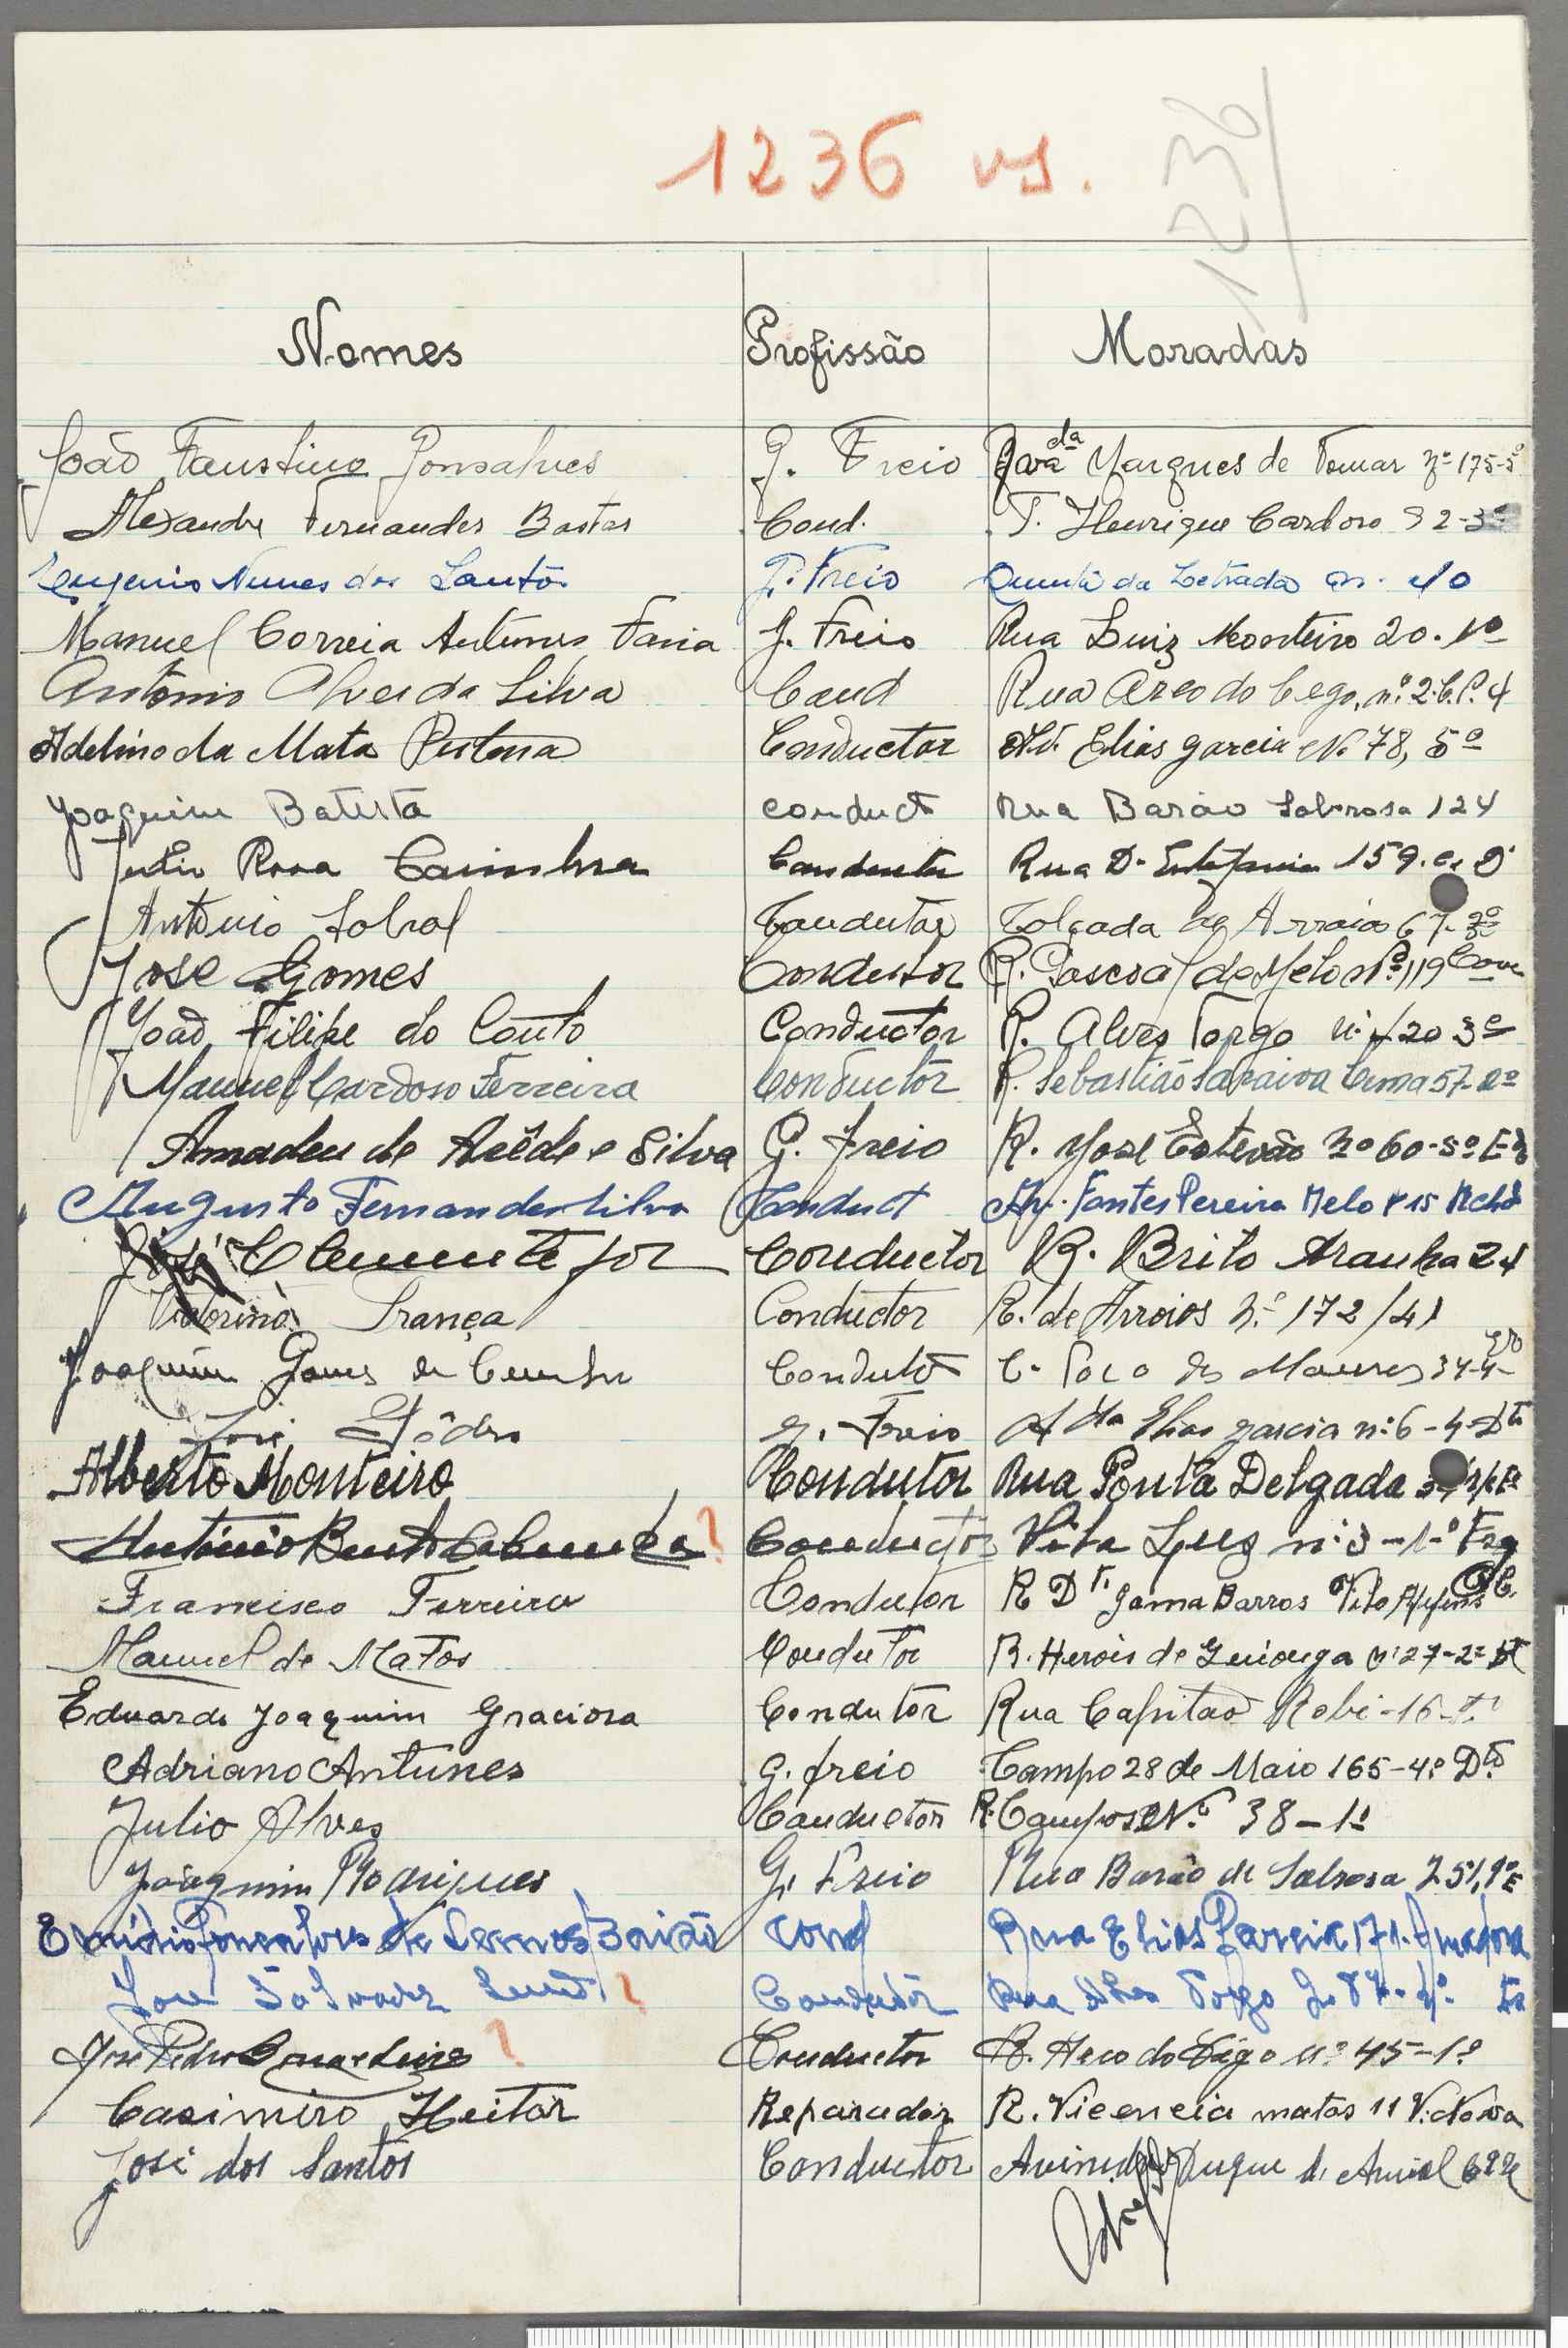 1236 vs.
1236
Nomes Profissão Moradas
João Faustino Gonsalves G. Freio Marques de Tomar Nº 175-5º
Alexandre Fernandes Bastos Cond. T. Henrique Cardoso 92-3º
Eugenio Nunes dos Santos G. Freio Quinta da
Manuel Correia Antunes Faria G. Freio Rua Luiz Monteiro 20. 1º
António Alves da Silva Cond Rua Arco do Cego, nº 2. C. P. 4
Adelino da Mata Conductor Av. Elias Garcia Nº 78, 5º
Joaquim Batista conduct Rua Barão Sabrosa 124
Rosa Coimbra Rua D. Estefania 159.
António Sobral Condutor Calçada de Arroios 67-2º
José Gomes Condutor R. Pascoal de Melo nº 119 Cave
João Filipe do Couto Conductor R. Alves Torgo nº 120 3º
Manuel Cardoso Ferreira Conductor R. Sebastião Saraiva Lima 57-2º
Amadeu de e Silva G. freio R. José Estevão nº 60-
Augusto Fernandes Silva Conduct Av. Fontes Pereira Melo
José Clemente Jor Conductor R. Brito Aranha 24
Victorino França Conductor R. de Arroios Nº 172/41
Joaquim Gomes da Cunha Condutor C. Poço dos Mouros 34-4-
José G. Freio Elias garcia nº 6-4-Dto
Alberto Monteiro Condutor Rua Ponta Delgada
António Bento Conductor Vila Luz nº 3-1º Esq
Francisco Ferreira Condutor R Dr. Gama Barros
Manuel de Matos Condutor R. Herois de Quionga nº 27-2º
Eduardo Joaquim Graciosa Condutor Rua Capitão Robi-16-
Adriano Antunes G. freio Campo 28 de Maio 165-4º Dto
Julio Alves Conductor Nº 38-1º
Joaquim Rodrigues G. Freio Rua Barão de Sabrosa 251, 1º E
Emidio Gonsalves de Lemos Baião cond Rua Elias Garcia 171. Amadora
Salvador ? Condutor Rua Torgo
José Pedro ? Conductor R. Arco do Cego nº 45-1º
Casimiro Heitor Reparador R. Vicencia matos 11
José dos Santos Conductor Duque de